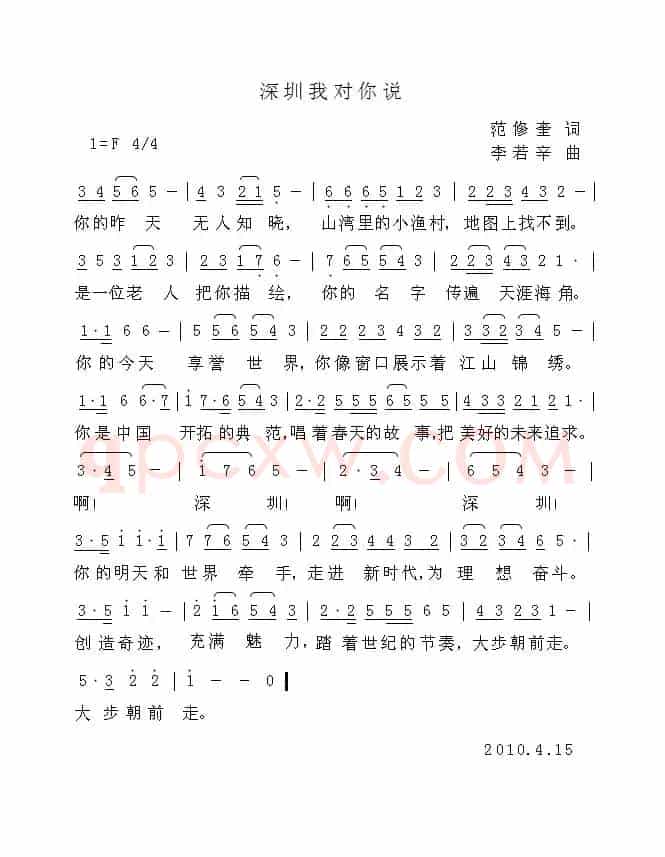 深圳我对你说
范修奎 词
1=F 4/4
李若辛 曲
3 4 5 6 5 — | 4 3 2 1 5 — | 6 6 6 5 1 2 3 | 2 2 3 4 3 2 — |
你的昨 天 无人知 晓， 山湾里的小渔村，地图上找不到。
3 5 3 1 2 3 | 2 3 1 7 6 — | 7 6 5 5 4 3 | 2 2 3 4 3 2 1 · |
是一位老 人 把你描 绘， 你的 名 字 传遍 天涯海 角。
1 · 1 6 6 — | 5 5 6 5 4 3 | 2 2 2 3 4 3 2 | 3 3 2 3 4 5 — |
你的今天 享誉 世 界，你像窗口展示着 江山 锦 绣。
1 · 1 6 6 · 7 | 1 7 · 6 5 4 3 | 2 · 2 5 5 5 6 5 5 5 | 4 3 3 2 1 2 1 |
你是中国 开拓的典 范，唱着春天的故 事，把 美好的未来追求。
3 · 4 5 — | 1 7 6 5 — | 2 · 3 4 — | 6 5 4 3 — |
啊！ 深 圳！ 啊！ 深 圳！
3 · 5 1 1 · 1 | 7 7 6 5 4 3 | 2 2 3 4 4 3 2 | 3 3 2 3 4 6 5 · |
你的明天和 世界 牵 手，走进 新时代，为 理 想 奋斗。
3 · 5 1 — | 2 1 6 5 4 3 | 2 · 2 5 5 5 6 5 | 4 3 2 3 1 — |
创造奇迹， 充满 魅 力，踏着世纪的节奏，大步朝前走。
5 · 3 2 2 | 1 — — 0 |
大 步 朝前 走。
2010.4.15
qpcxw.com